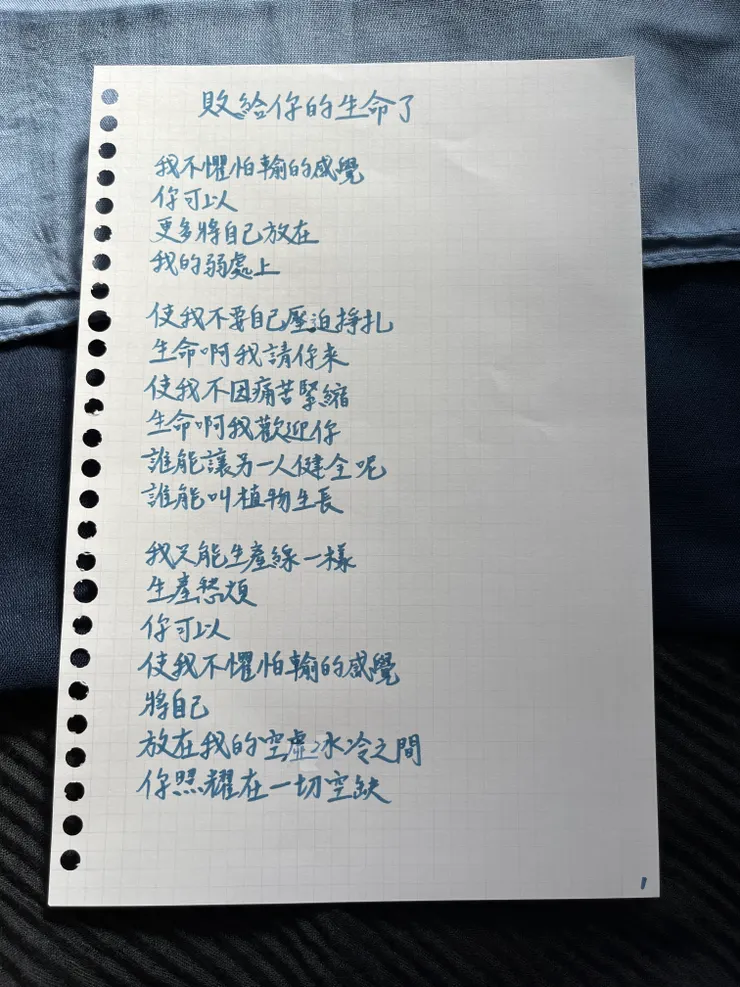 敗給你的生命了
我不懼怕輸的感覺
你可以
更多將自己放在
我的弱處上
使我不要自己壓迫掙扎
生命啊我請你來
使我不因痛苦緊縮
生命啊我歡迎你
誰能讓另一人健全呢
誰能叫植物生長
我只能生產線一樣
生產愁煩
你可以
使我不懼怕輸的感覺
將自己
放在我的空虛冰冷之間
你照耀在一切空缺
1